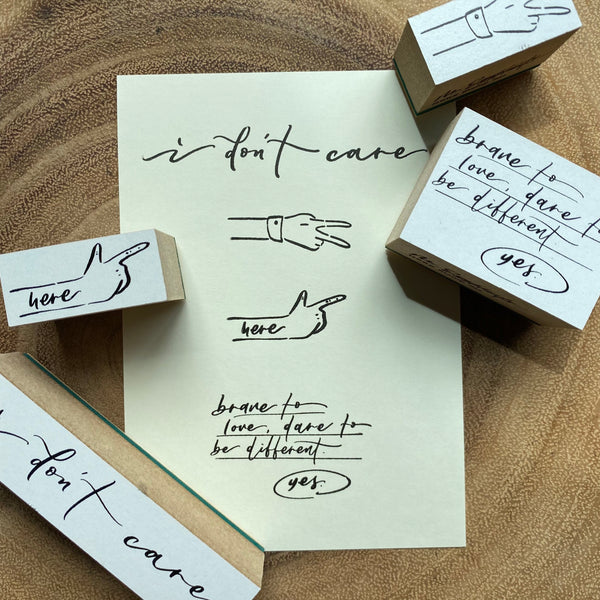 i don't care
here
brave to
love, dare to
be different.
yes.
brave to
love, dare to
be different.
yes.
here
i don't care